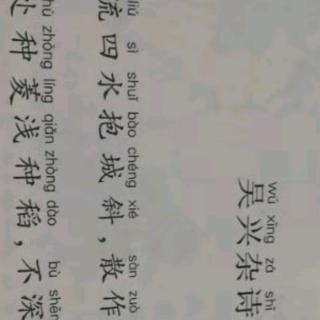 wú xīng zá shī
吴兴杂诗
liú sì shuǐ bào chéng xié sàn zuò
流四水抱城斜，散作
chù zhòng líng qiǎn zhòng dào bù shēn
处种菱浅种稻，不深